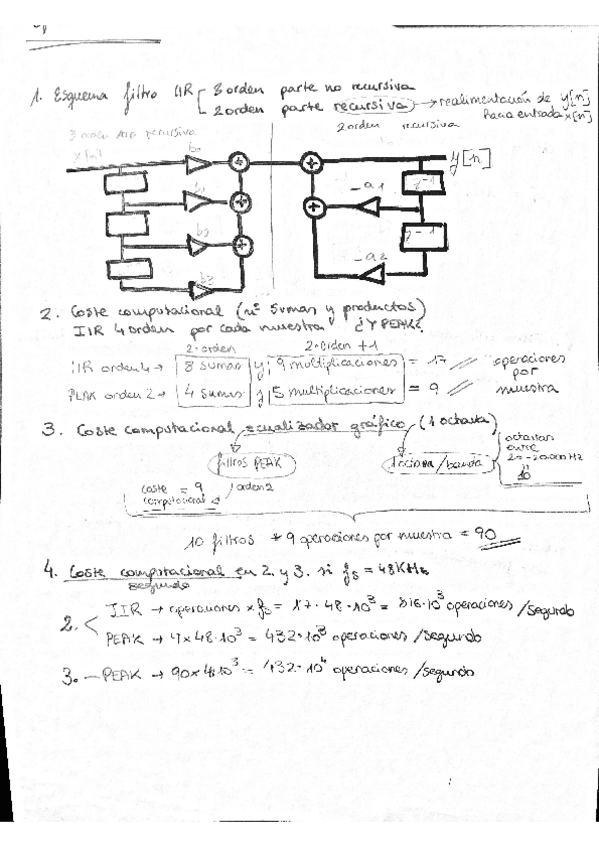 1. Esquema filtro IIR 3 orden parte no recursiva
2 orden parte recursiva → realimentación de y[n]
hacia entrada x[n]
3 orden no recursiva
2 orden recursiva
x[n]
b0
y[n]
b1
-a1
z-1
b2
z-1
-a2
b3
2. Coste computacional (nº sumas y productos)
IIR 4 orden por cada muestra ¿Y PEAK?
2·orden
2·orden +1
IIR orden 4 → 8 sumas y 9 multiplicaciones = 17 operaciones
por
PEAK orden 2 → 4 sumas y 5 multiplicaciones = 9 muestra
3. Coste computacional ecualizador gráfico (1 octava)
filtros PEAK
1 octava/banda
octavas
entre
20-20.000Hz
10
coste = 9
computacional
orden 2
10 filtros * 9 operaciones por muestra = 90
4. Coste computacional en 2. y 3. si fs = 48KHz
segundo
2. IIR → operaciones x fs = 17·48·10³ = 816·10³ operaciones/segundo
PEAK → 9x48·10³ = 432·10³ operaciones/segundo
3. — PEAK → 90x48·10³ = 432·10⁴ operaciones/segundo